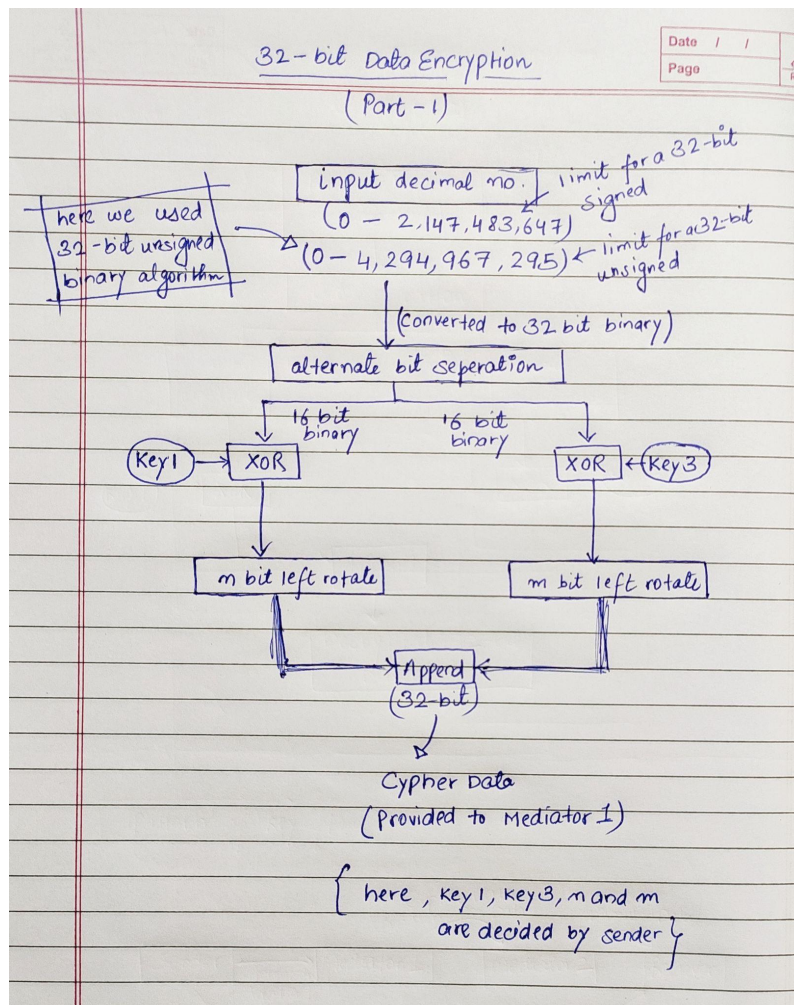 32-bit Data Encryption
Date / /
Page
(Part-1)
input decimal no.
limit for a 32-bit
signed
(0 - 2,147,483,647)
here we used
32-bit unsigned
binary algorithm
(0 - 4,294,967,295)
limit for a 32-bit
unsigned
(Converted to 32 bit binary)
alternate bit seperation
16 bit
binary
16 bit
binary
Key1
XOR
XOR
Key3
n bit left rotate
m bit left rotate
Append
(32-bit)
Cypher Data
(Provided to Mediator 1)
{ here, Key1, Key3, n and m
are decided by sender }